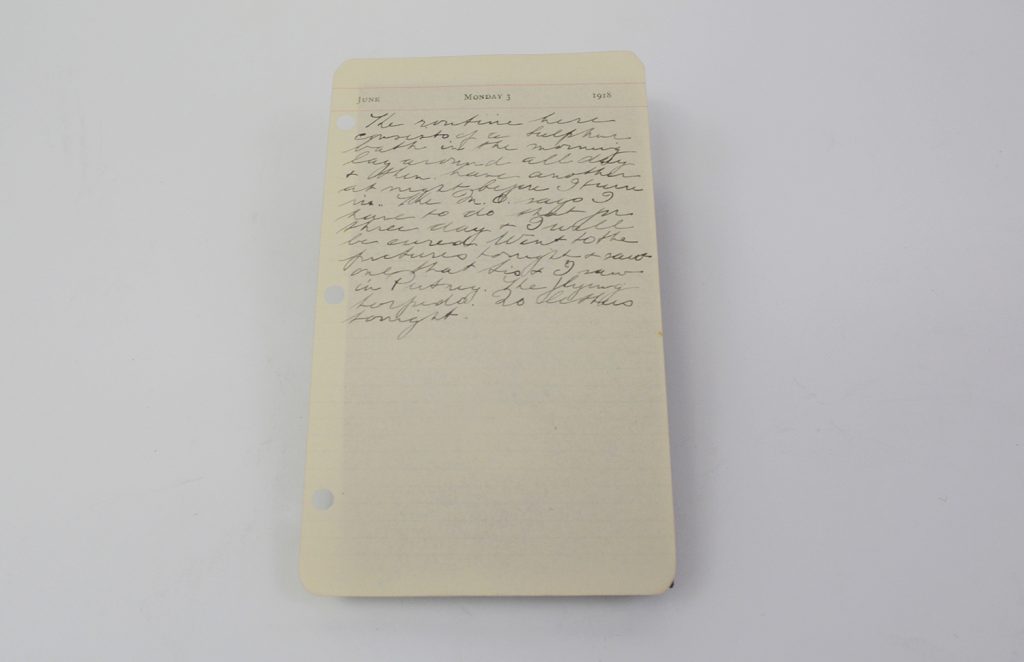 June Monday 3 1918
The routine here
consists of a sulpher
bath in the morning
lay around all day
& then have another
at night before I turn
in. The M. O. says I
have to do that for
three day & I will
be cured. Went to the
pictures tonight & saw
one that Sis & I saw
in Putney. The flying
torpedo. 20 letters
tonight.